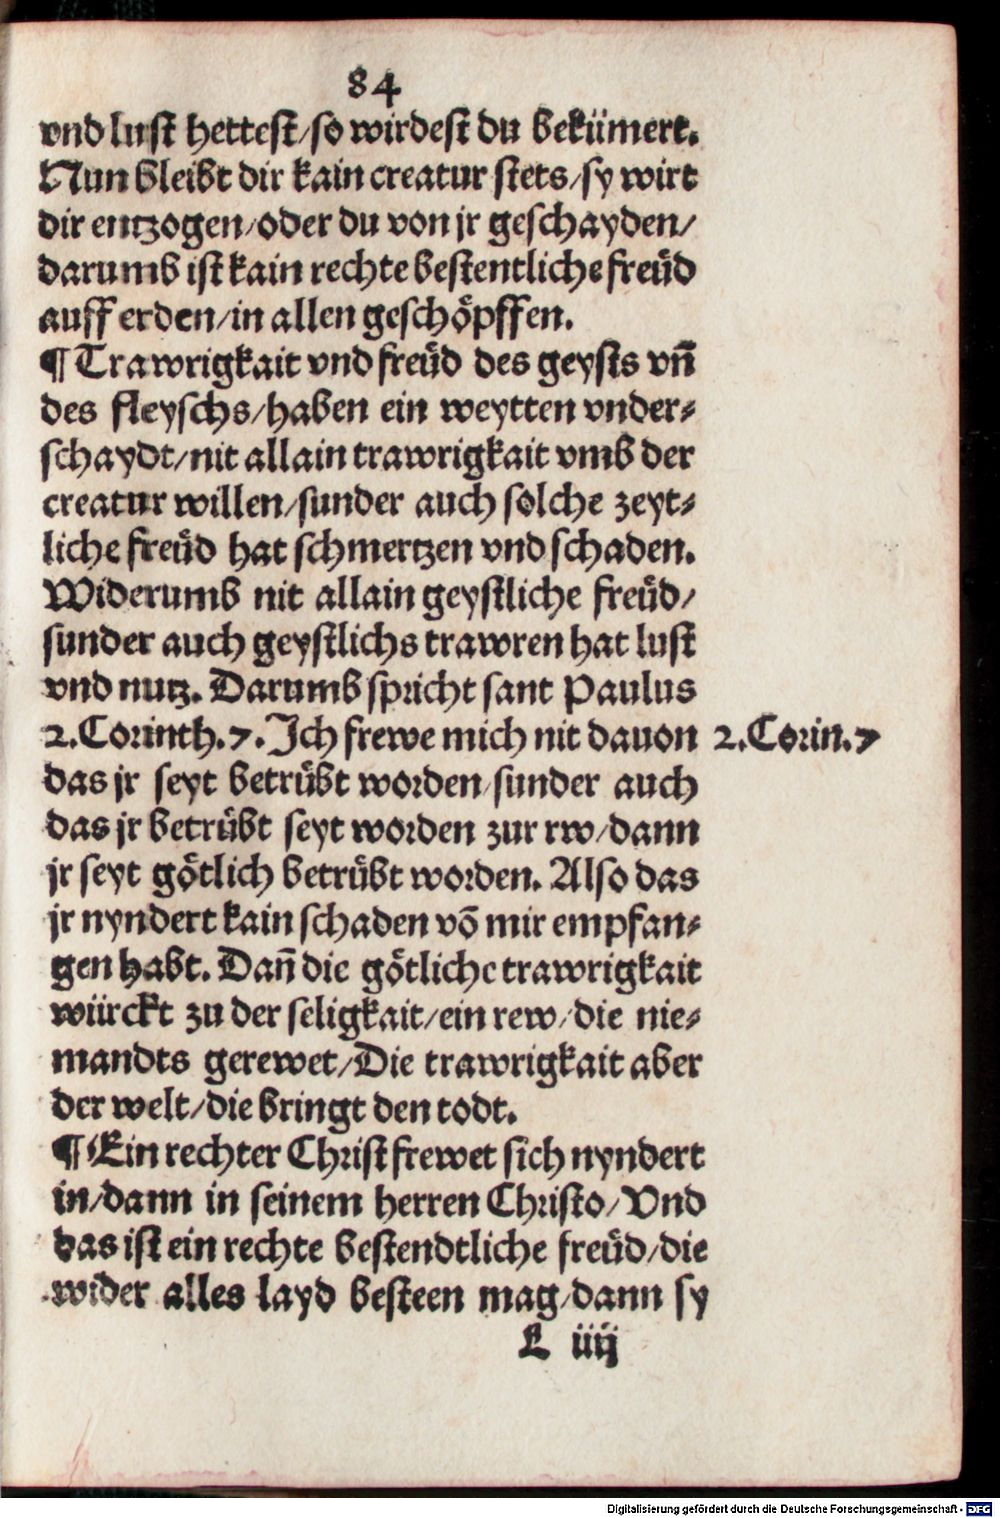 84
vnd lust hettest/so wirdest du bekümert.
Nun bleibt dir kain creatur stets/sy wirt
dir entzogen/oder du von jr geschayden/
darumb ist kain rechte bestentliche freüd
auff erden/in allen geschöpffen.
¶ Trawrigkait vnd freüd des geysts vñ
des fleyschs/haben ein weytten vnder⸗
schaydt/nit allain trawrigkait vmb der
creatur willen/sunder auch solche zeyt⸗
liche freüd hat schmertzen vnd schaden.
Widerumb nit allain geystliche freüd/
sunder auch geystlichs trawren hat lust
vnd nutz. Darumb spricht sant Paulus
2.Corinth.7. Ich frewe mich nit dauon 2.Corin.7
das jr seyt betrübt worden/sunder auch
das jr betrübt seyt worden zur rw/dann
jr seyt götlich betrübt worden. Also das
jr nyndert kain schaden võ mir empfan⸗
gen habt. Dañ die götliche trawrigkait
würckt zu der seligkait/ein rew/die nie⸗
mandts gerewet/Die trawrigkait aber
der welt/die bringt den todt.
¶ Ein rechter Christ frewet sich nyndert
in/dann in seinem herren Christo/Vnd
das ist ein rechte bestendtliche freüd/die
wider alles layd besteen mag/dann sy
L iiij
Digitalisierung gefördert durch die Deutsche Forschungsgemeinschaft - DFG